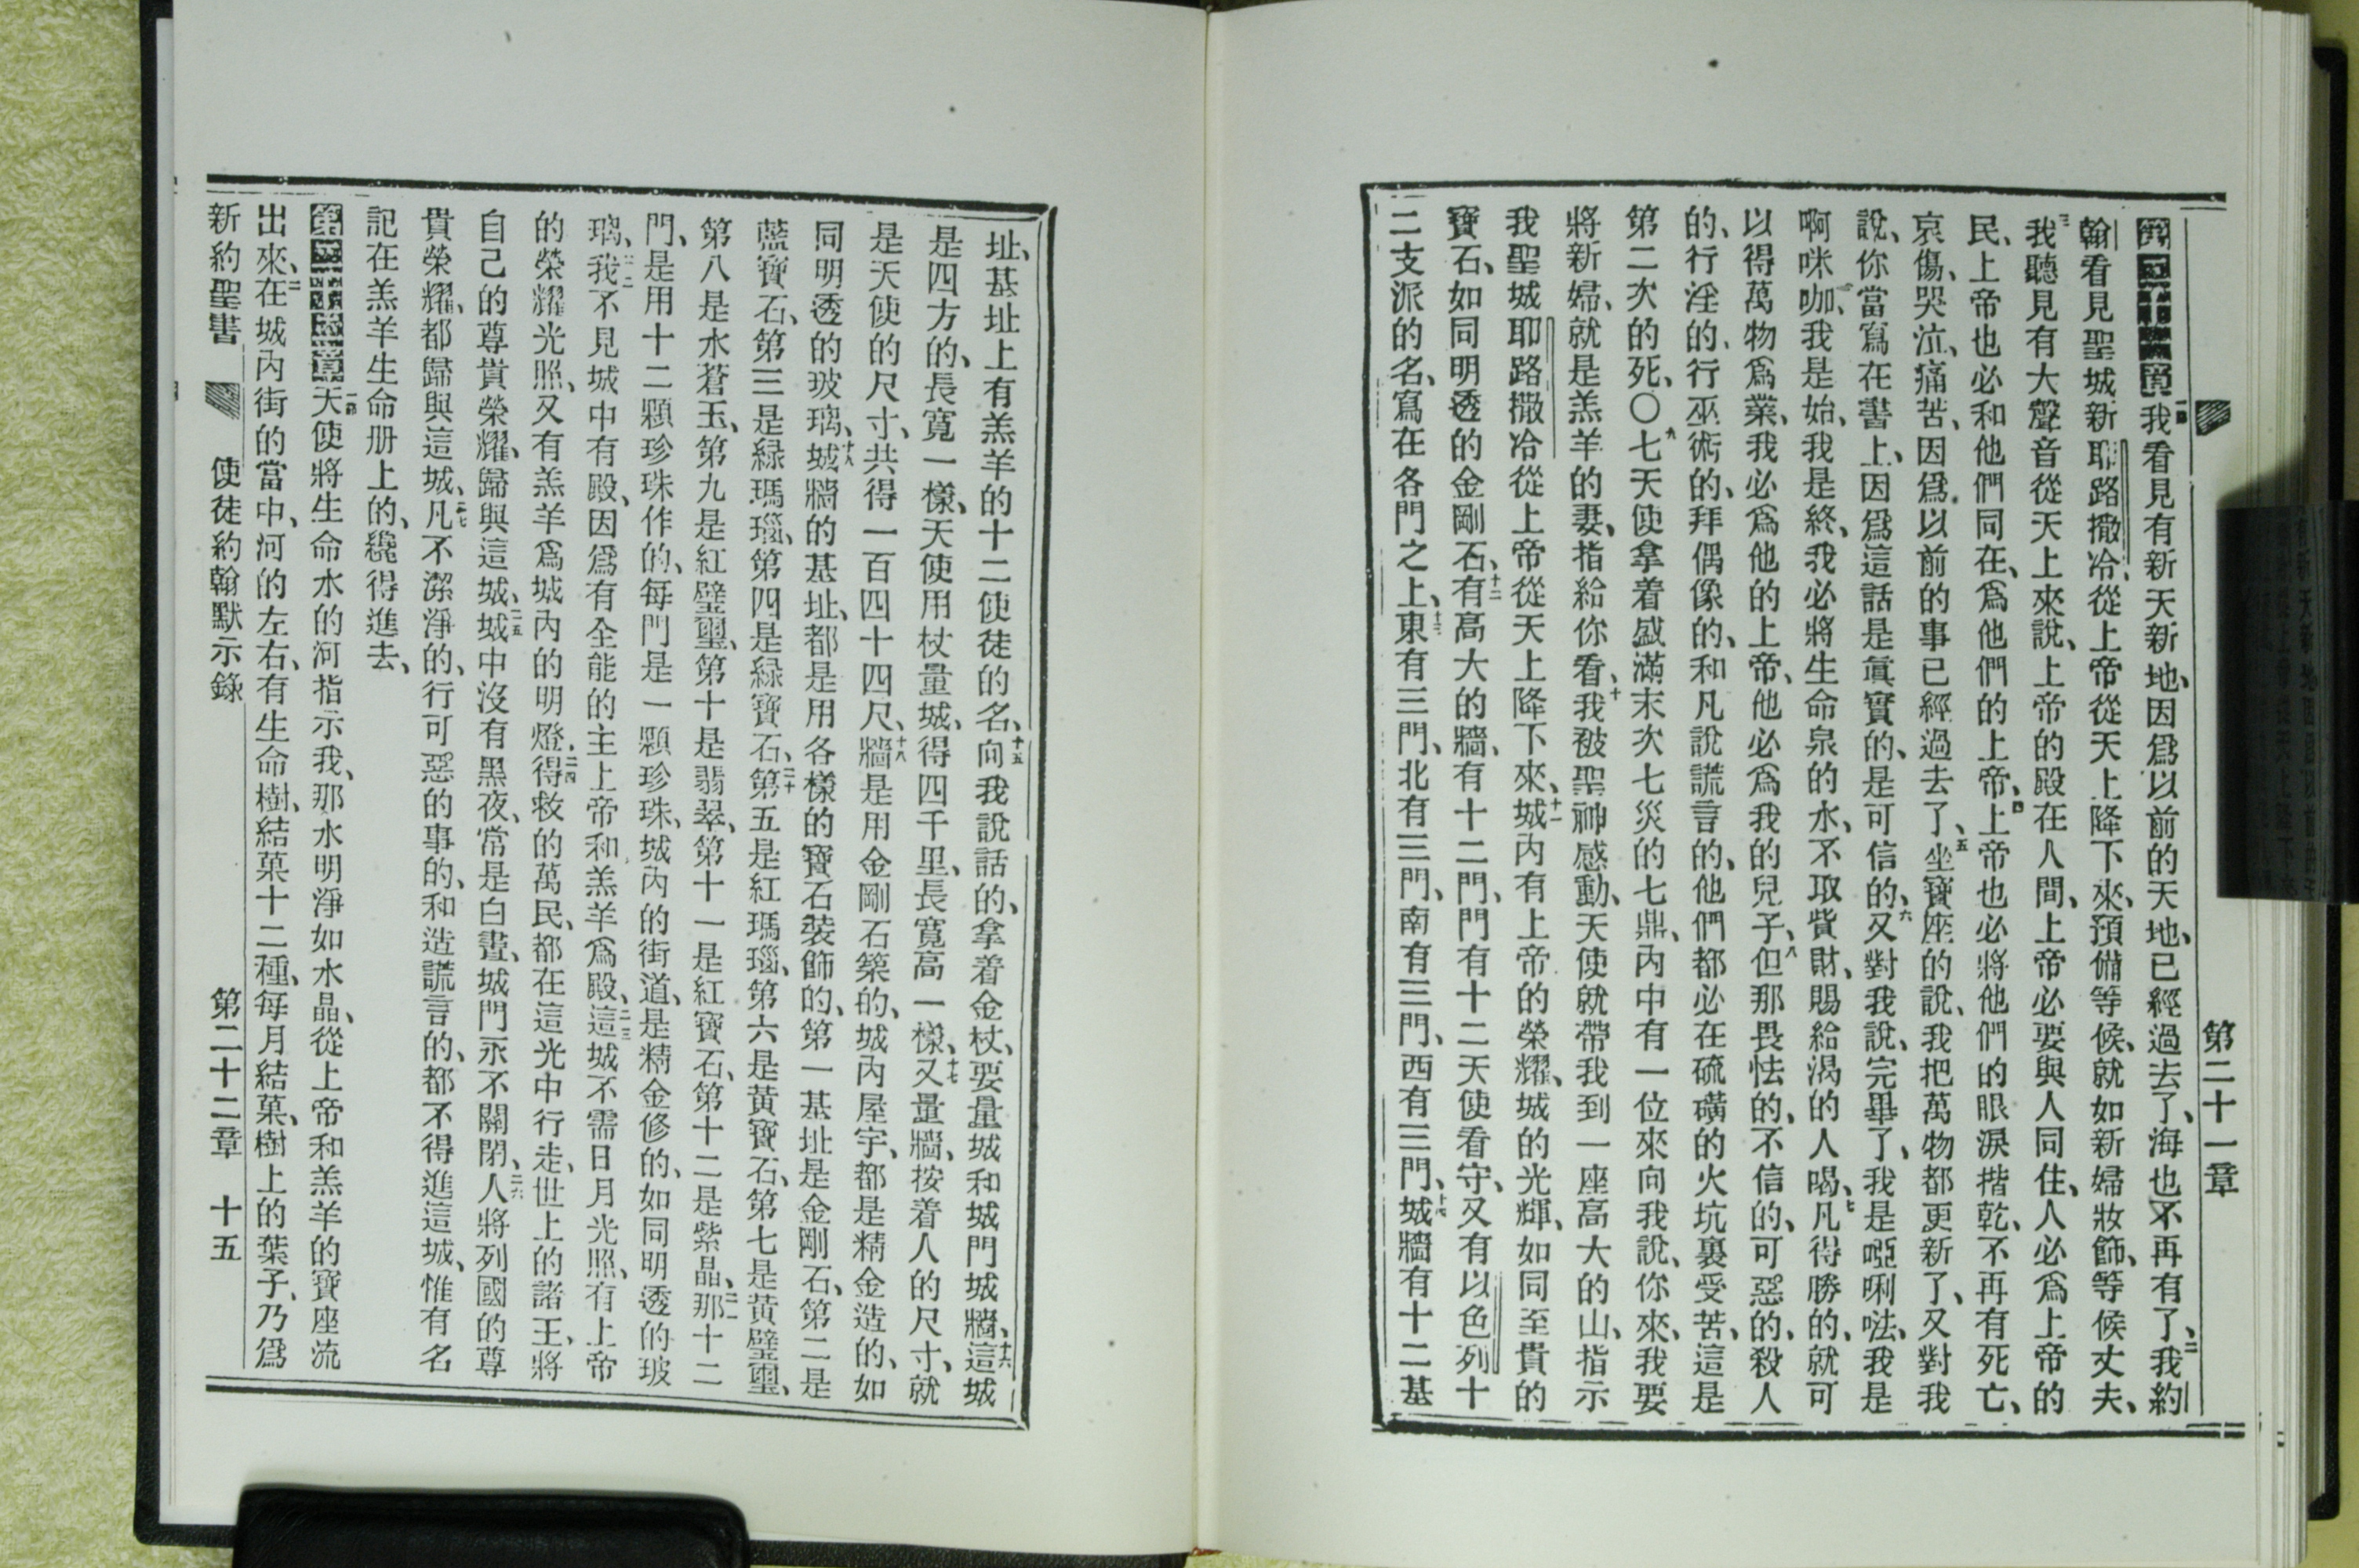 第二十一章
第二十一章一節我看見有新天新地、因爲以前的天地、已經過去了、海也不再有了、二我約
翰看見聖城新耶路撒冷、從上帝從天上降下來、預備等候、就如新婦妝飾、等候丈夫、
三我聽見有大聲音從天上來說、上帝的殿在人間、上帝必要與人同住、人必爲上帝的
民、上帝也必和他們同在、爲他們的上帝、四上帝也必將他們的眼淚揩乾、不再有死亡、
哀傷、哭泣、痛苦、因爲以前的事已經過去了、五坐寶座的說、我把萬物都更新了、又對我
說、你當寫在書上、因爲這話是眞實的、是可信的、六又對我說、完畢了、我是啞唎㕵、我是
啊咪咖、我是始、我是終、我必將生命泉的水、不取貲財、賜給渴的人喝、七凡得勝的、就可
以得萬物爲業、我必爲他的上帝、他必爲我的兒子、八但那畏怯的、不信的、可惡的、殺人
的、行淫的、行巫術的、拜偶像的、和凡說謊言的、他們都必在硫磺的火坑裏受苦、這是
第二次的死、〇九七天使拿着盛滿末次七災的七鼎、內中有一位來向我說、你來、我要
將新婦、就是羔羊的妻、指給你看、十我被聖神感動、天使就帶我到一座高大的山、指示
我聖城耶路撒冷從上帝從天上降下來、十一城內有上帝的榮耀、城的光輝、如同至貴的
寶石、如同明透的金剛石、十二有高大的牆、有十二門、門有十二天使看守、又有以色列十
二支派的名、寫在各門之上、十三東有三門、北有三門、南有三門、西有三門、十四城牆有十二基
址、基址上有羔羊的十二使徒的名、十五向我說話的、拿着金杖、要量城和城門城牆、十六這城
是四方的、長寬一樣、天使用杖量城、得四千里、長寬高一樣、十七又量牆、按着人的尺寸、就
是天使的尺寸、共得一百四十四尺、十八牆是用金剛石築的、城內屋宇、都是精金造的、如
同明透的玻璃、十八城牆的基址、都是用各樣的寶石裝飾的、第一基址是金剛石、第二是
藍寶石、第三是綠瑪瑙、第四是綠寶石、二十第五是紅瑪瑙、第六是黃寶石、第七是黃璧璽、
第八是水蒼玉、第九是紅璧璽、第十是翡翠、第十一是紅寶石、第十二是紫晶、二一那十二
門、是用十二顆珍珠作的、每門是一顆珍珠、城內的街道、是精金修的、如同明透的玻
璃、二二我不見城中有殿、因爲有全能的主上帝和羔羊爲殿、二三這城不需日月光照、有上帝
的榮耀光照、又有羔羊爲城內的明燈、二四得救的萬民、都在這光中行走、世上的諸王、將
自己的尊貴榮耀、歸與這城、二五城中沒有黑夜、常是白晝、城門永不關閉、二六人將列國的尊
貴榮耀、都歸與這城、二七凡不潔淨的、行可惡的事的、和造謊言的、都不得進這城、惟有名
記在羔羊生命册上的、纔得進去、
第二十二章一節天使將生命水的河指示我、那水明淨如水晶、從上帝和羔羊的寶座流
出來、二在城內街的當中、河的左右、有生命樹、結菓十二種、每月結菓、樹上的葉子、乃爲
新約聖書 使徒約翰默示錄 第二十二章 十五